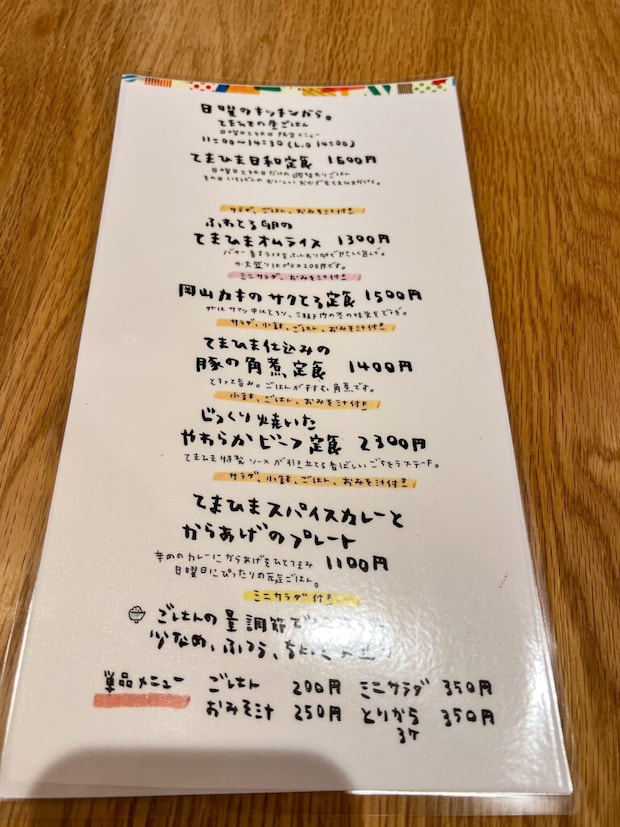 日曜のキッチンから。
てまひまの昼ごはん
日曜日と祝日 限定メニュー
11:00〜14:30 (L.O 14:00)
てまひま日和定食 1600円
日曜日と祝日だけの
その日いちばんのおいしい
サラダ、ごはん、おみそ汁付き
ふわとろ卵の
てまひまオムライス 1300円
バター
大盛りはプラス200円です。
ミニサラダ、おみそ汁付き
岡山カキのサクとろ定食 1500円
外はサクッ 中はとろり、
サラダ、小鉢、ごはん、おみそ汁付き
てまひま仕込みの
豚の角煮定食 1400円
とろっと旨み。ごはんがすすむ角煮です。
小鉢、ごはん、おみそ汁付き
じっくり焼いた
やわらかビーフ定食 2300円
てまひま特製ソースが引き立てる香ばしいごちそうステーキ。
サラダ、小鉢、ごはん、おみそ汁付き
てまひまスパイスカレーと
からあげのプレート
辛めのカレーにからあげをひとてまみ 1100円
日曜日にぴったりの元気ごはん。
ミニサラダ付き
ごはんの量調節で
少なめ、ふつう、
単品メニュー ごはん 200円 ミニサラダ 350円
おみそ汁 250円 とりから 350円
3ケ